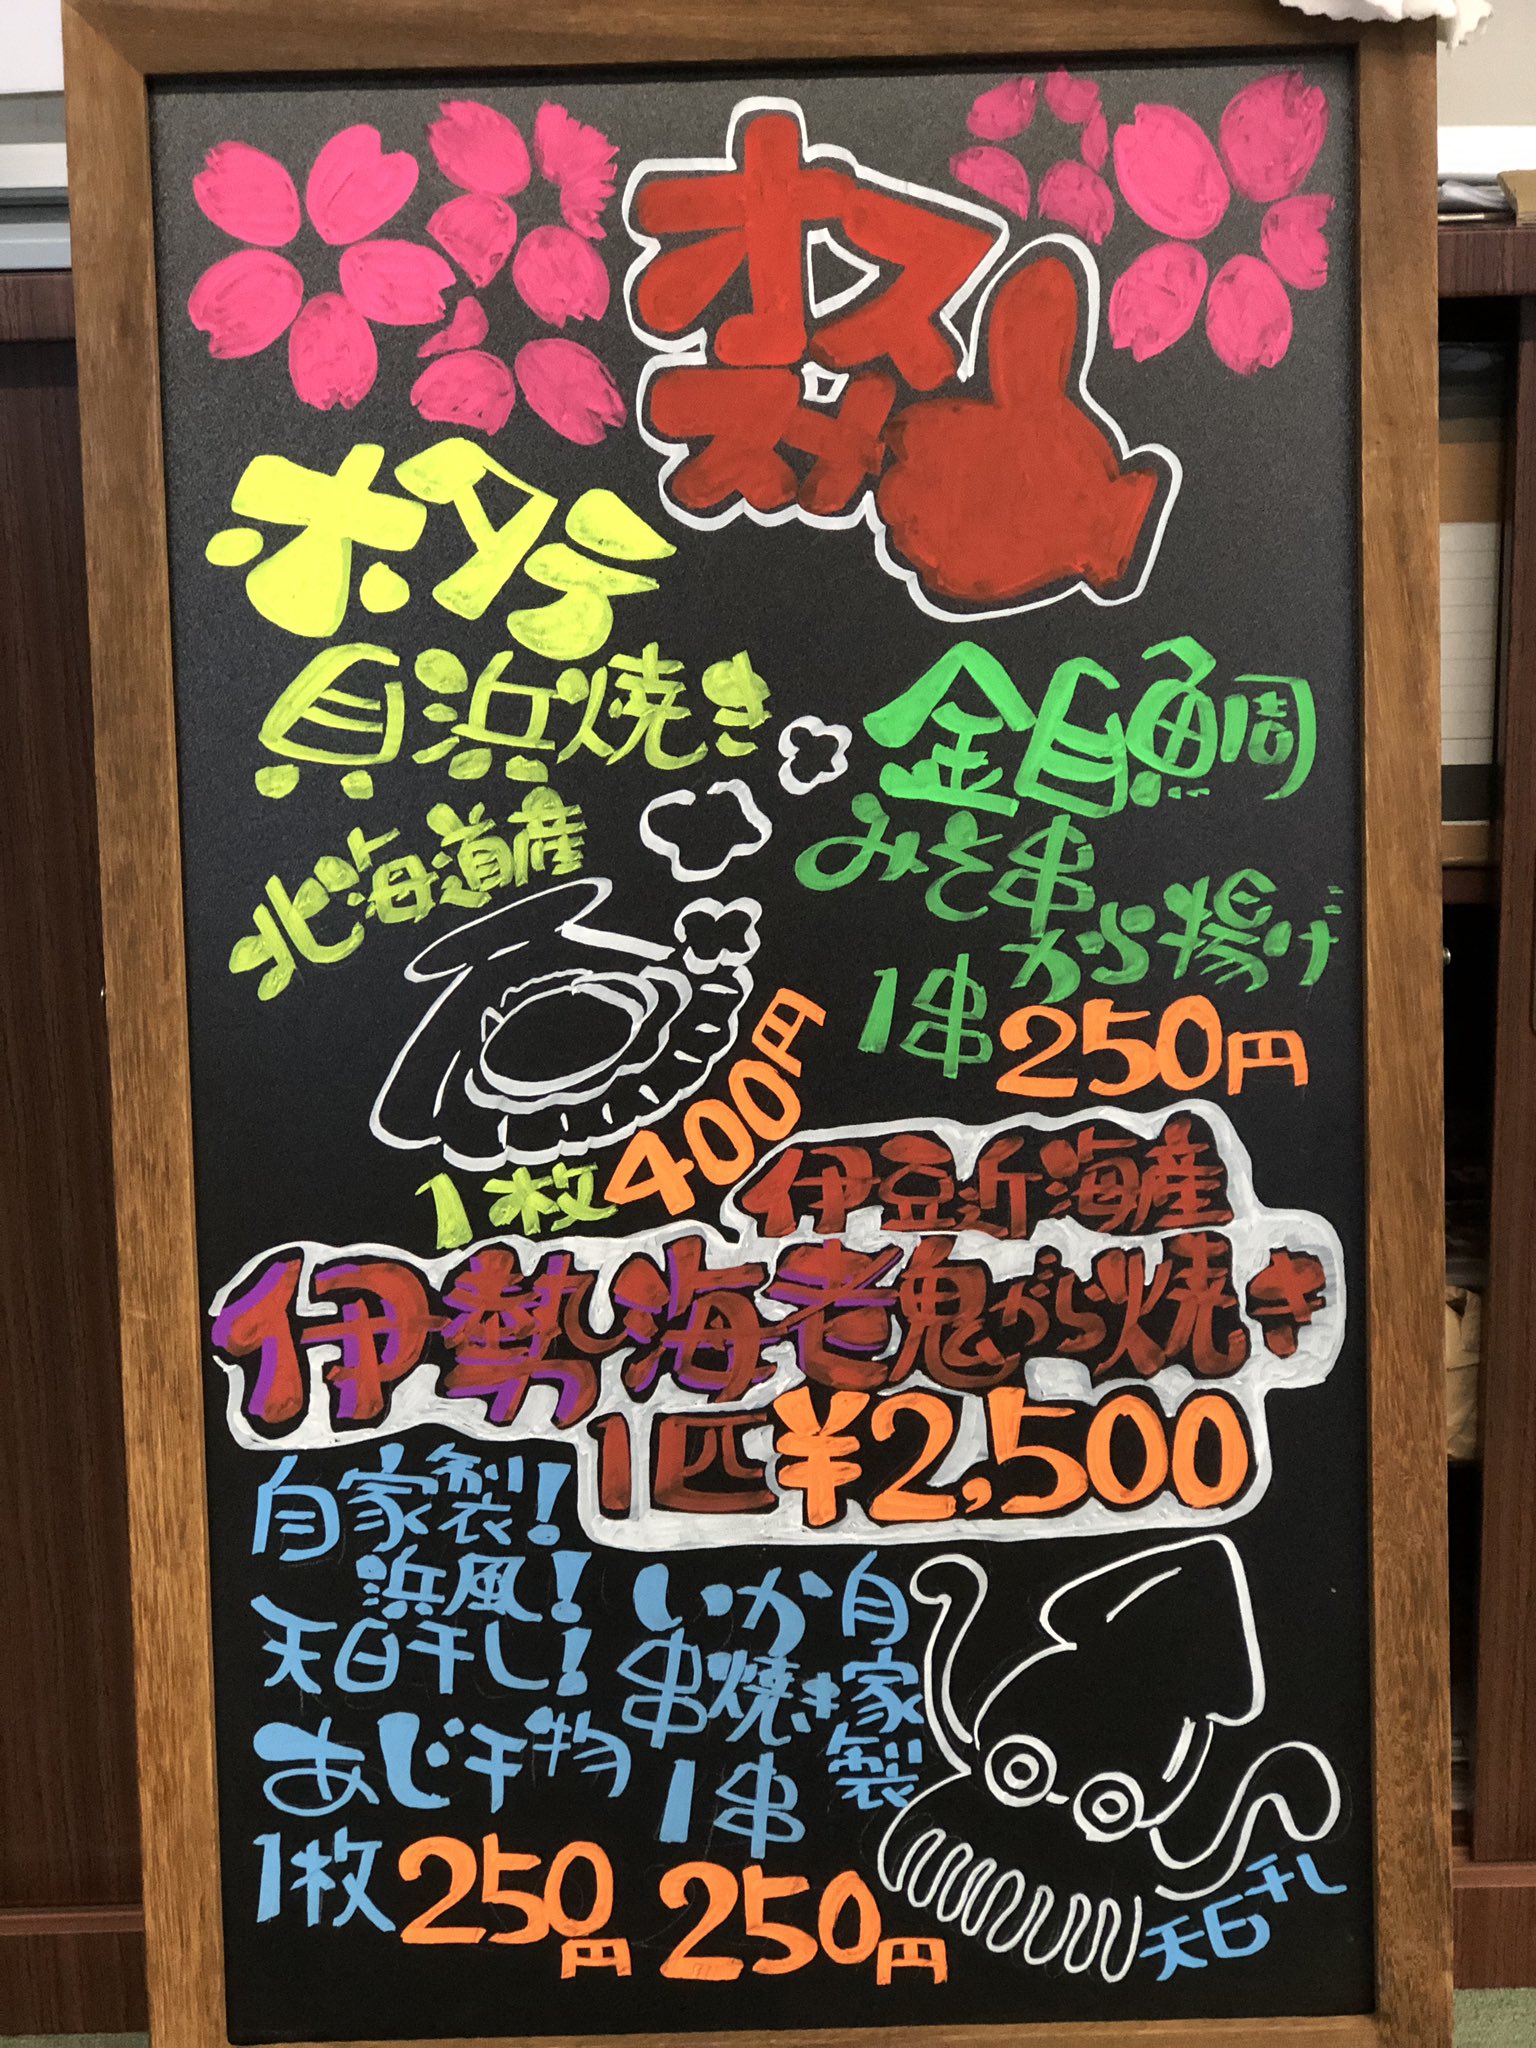 オススメ
ホタテ
貝浜焼き
北海道産
1枚400円
金目鯛
みそ串
から揚げ
1串250円
伊豆近海産
伊勢海老鬼がら焼き
1匹¥2,500
自家製!
浜風!
天日干し!
あじ干物
1枚250円
自家製
いか
串焼き
1串
250円
天日干し